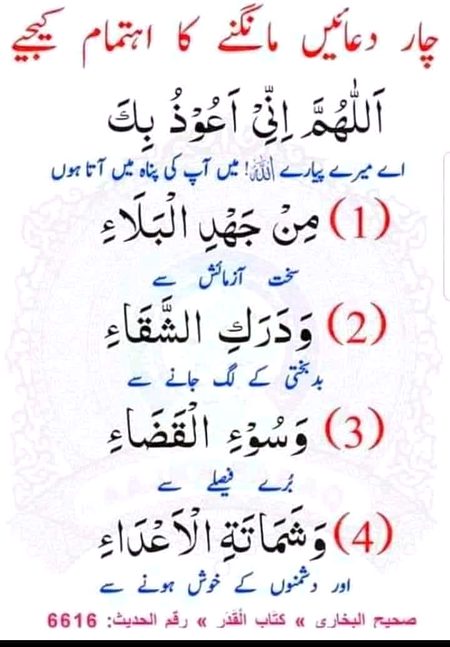 چار دعائیں مانگنے کا اہتمام کیجیے
اَللّٰهُمَّ اِنِّیْ اَعُوْذُ بِكَ
اے میرے پیارے اللہ! میں آپ کی پناہ میں آتا ہوں
(1) مِنْ جَهْدِ الْبَلَاءِ
سخت آزمائش سے
(2) وَدَرَكِ الشَّقَاءِ
بدبختی کے لگ جانے سے
(3) وَسُوْءِ الْقَضَاءِ
بُرے فیصلے سے
(4) وَشَمَاتَةِ الْاَعْدَاءِ
اور دشمنوں کے خوش ہونے سے
صحیح البخاری » کتاب الْقَدَر » رقم الحدیث: 6616